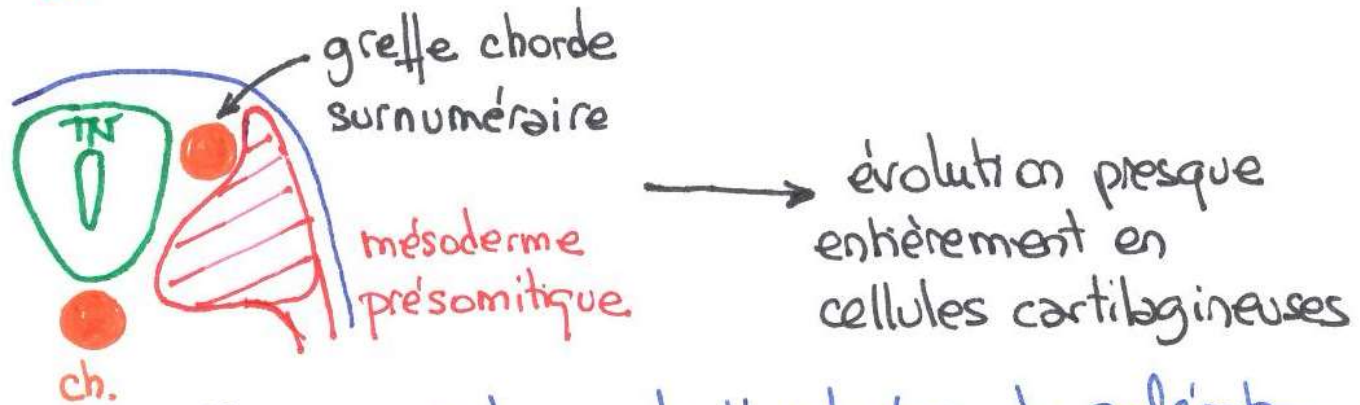 greffe chorde
surnuméraire
TN
mésoderme
présomitique
ch.
évolution presque
entièrement en
cellules cartilagineuses